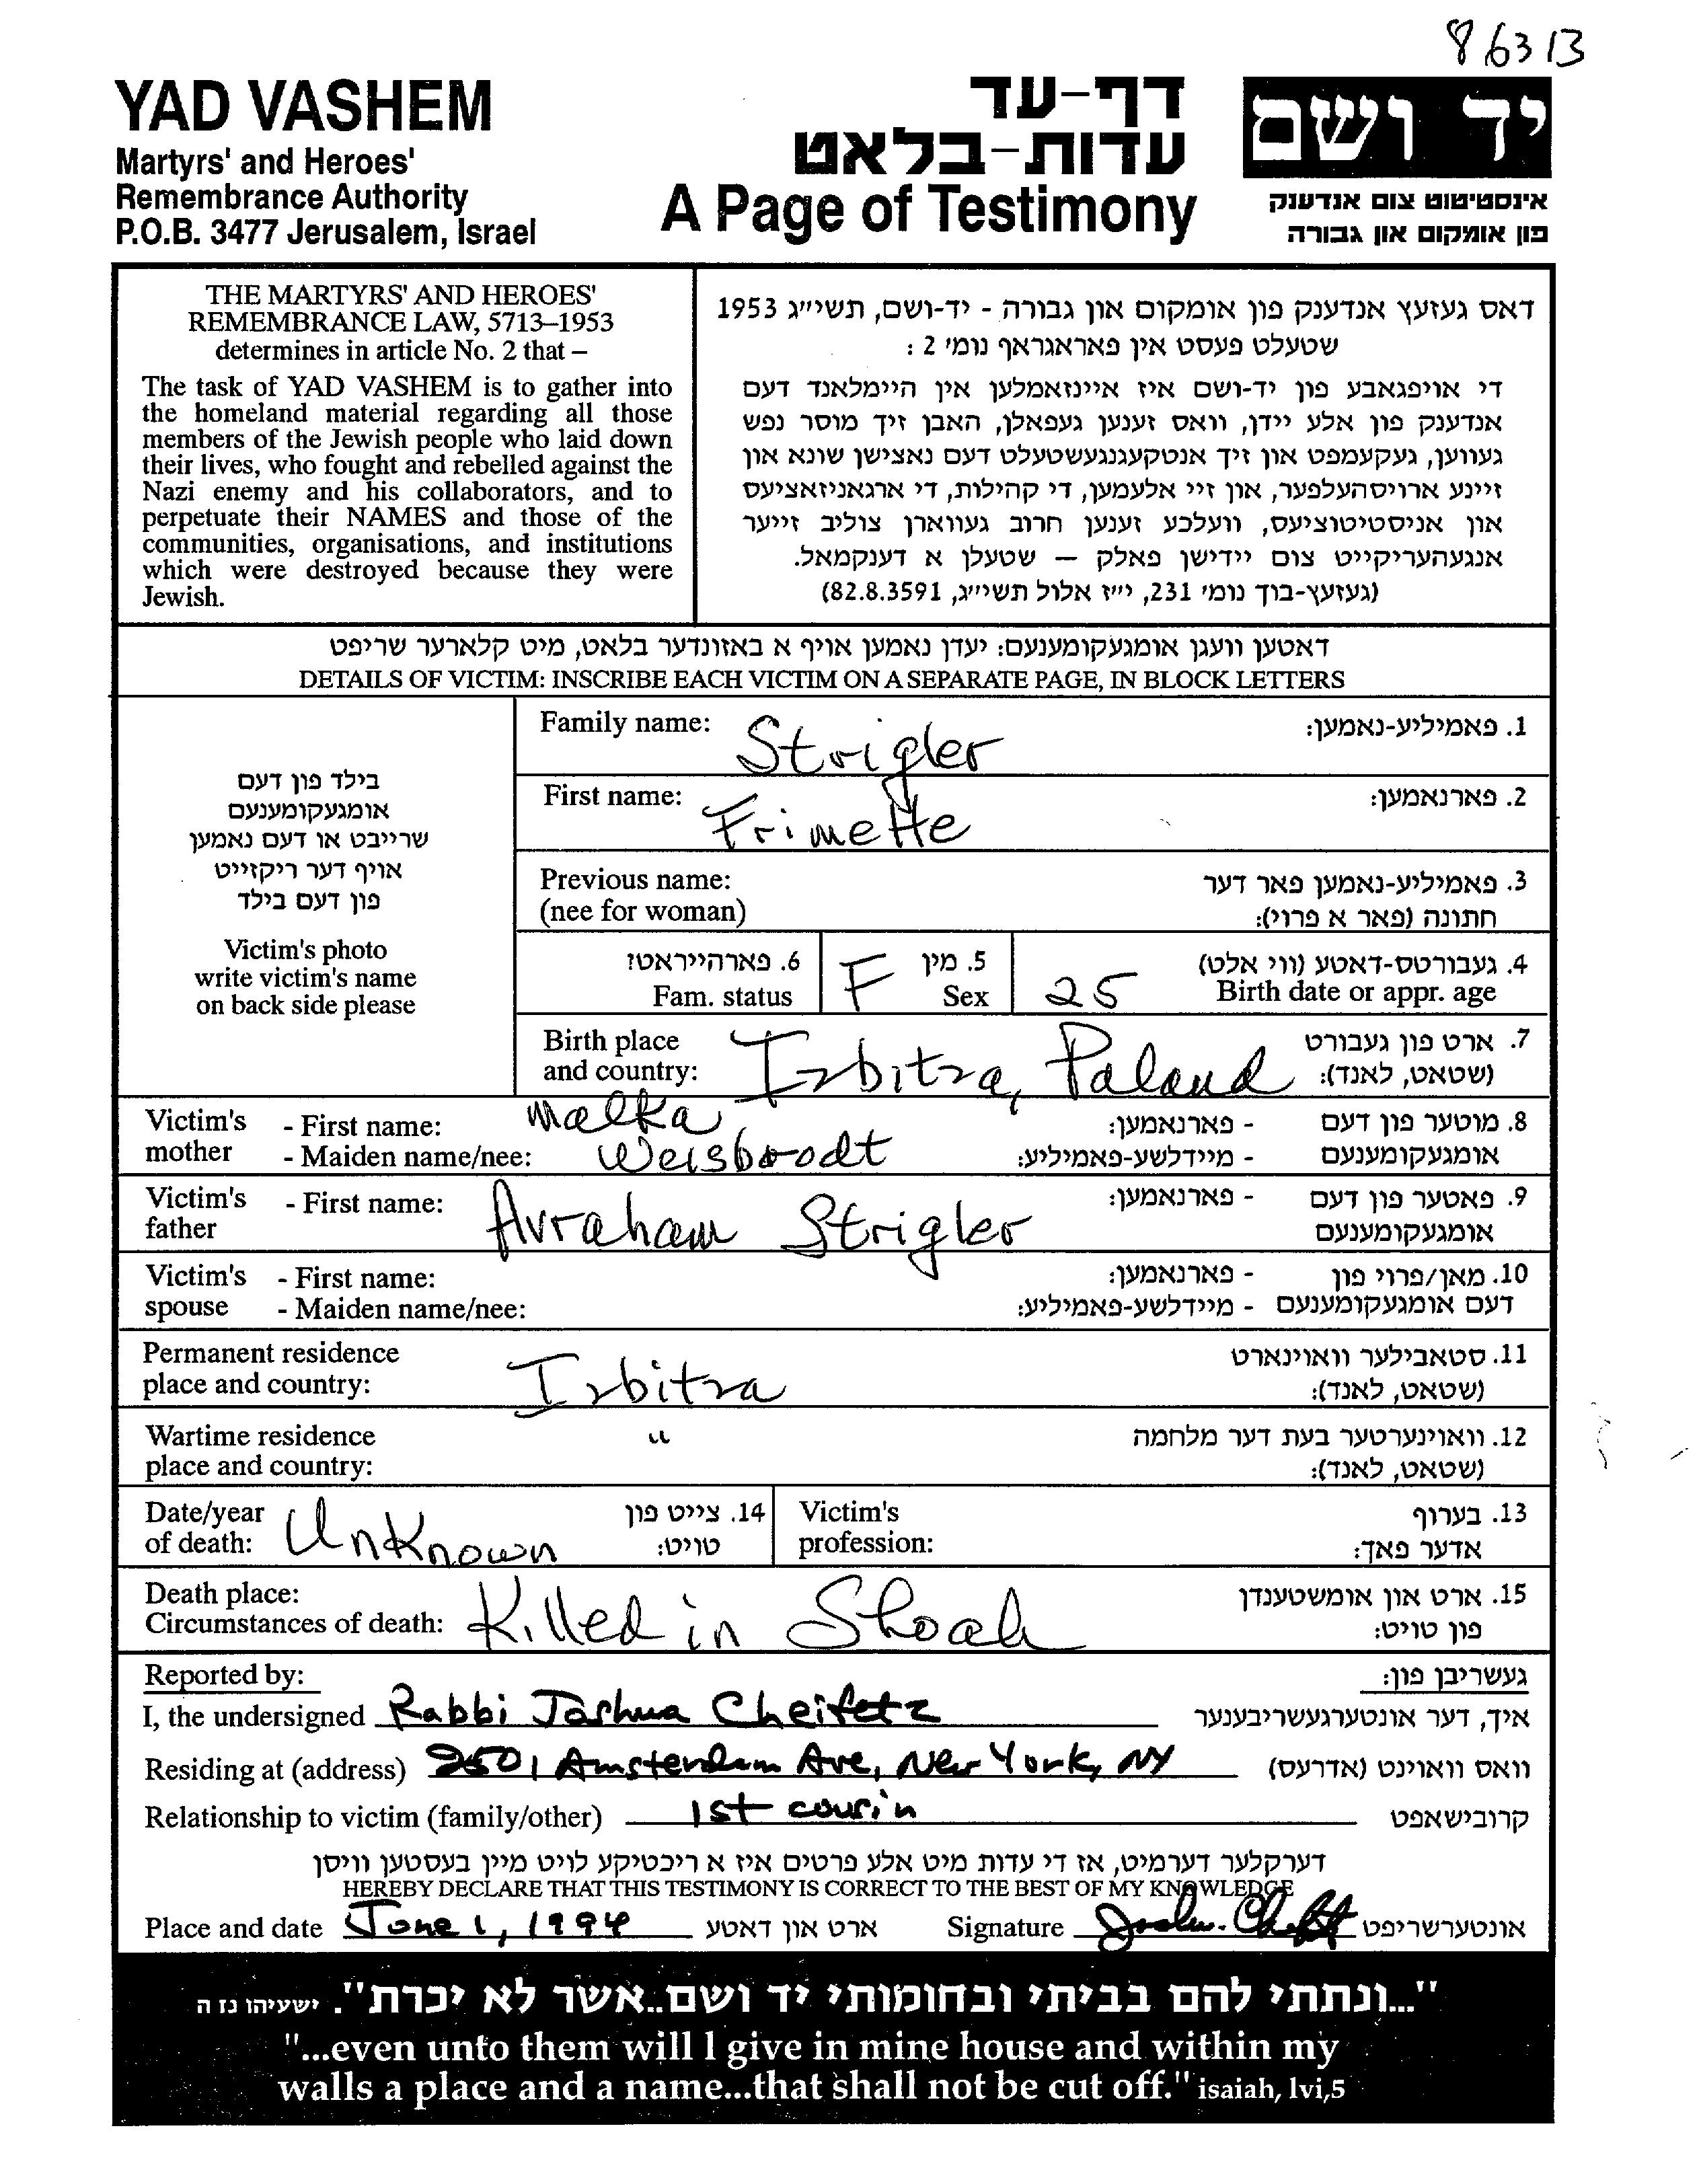 86313
YAD VASHEM
Martyrs' and Heroes'
Remembrance Authority
P.O.B. 3477 Jerusalem, Israel
דף-עד
עדות-בלאט
A Page of Testimony
יד ושם
אינסטיטוט צום אנדענק
פון אומקום און גבורה
THE MARTYRS' AND HEROES'
REMEMBRANCE LAW, 5713–1953
determines in article No. 2 that –
The task of YAD VASHEM is to gather into
the homeland material regarding all those
members of the Jewish people who laid down
their lives, who fought and rebelled against the
Nazi enemy and his collaborators, and to
perpetuate their NAMES and those of the
communities, organisations, and institutions
which were destroyed because they were
Jewish.
דאס געזעץ אנדענק פון אומקום און גבורה - יד-ושם, תשי״ג 1953
שטעלט פעסט אין פאראגראף נומ׳ 2 :
די אויפגאבע פון יד-ושם איז איינזאמלען אין היימלאנד דעם
אנדענק פון אלע יידן, וואס זענען געפאלן, האבן זיך מוסר נפש
געווען, געקעמפט און זיך אנטקעגנגעשטעלט דעם נאצישן שונא און
זיינע ארויסהעלפער, און זיי אלעמען, די קהילות, די ארגאניזאציעס
און אניסטיטוציעס, וועלכע זענען חרוב געווארן צוליב זייער
אנגעהעריקייט צום יידישן פאלק — שטעלן א דענקמאל.
(געזעץ-בוך נומ׳ 231, י״ז אלול תשי״ג, 82.8.3591)
דאטען וועגן אומגעקומענעם: יעדן נאמען אויף א באזונדער בלאט, מיט קלארער שריפט
DETAILS OF VICTIM: INSCRIBE EACH VICTIM ON A SEPARATE PAGE, IN BLOCK LETTERS
בילד פון דעם
אומגעקומענעם
שרייבט או דעם נאמען
אויף דער ריקזייט
פון דעם בילד
Victim's photo
write victim's name
on back side please
Family name: Strigler 1. פאמיליע-נאמען:
First name: Frimette 2. פארנאמען:
Previous name: 3. פאמיליע-נאמען פאר דער
(nee for woman) חתונה (פאר א פרוי):
6. פארהייראט? F 5. מין 25 4. געבורטס-דאטע (ווי אלט)
Fam. status Sex Birth date or appr. age
Birth place 7. ארט פון געבורט
and country: Izbitza, Poland (שטאט, לאנד):
Victim's - First name: Malka - פארנאמען: 8. מוטער פון דעם
mother - Maiden name/nee: Weisbrodt - מיידלשע-פאמיליע: אומגעקומענעם
Victim's - First name: Avraham Strigler - פארנאמען: 9. פאטער פון דעם
father אומגעקומענעם
Victim's - First name: - פארנאמען: 10. מאן/פרוי פון
spouse - Maiden name/nee: - מיידלשע-פאמיליע: דעם אומגעקומענעם
Permanent residence 11. סטאבילער וואוינארט
place and country: Izbitza (שטאט, לאנד):
Wartime residence " 12. וואוינערטער בעת דער מלחמה
place and country: (שטאט, לאנד):
Date/year 14. צייט פון Victim's 13. בערוף
of death: Unknown טויט: profession: אדער פאך:
Death place: 15. ארט און אומשטענדן
Circumstances of death: Killed in Shoah פון טויט:
Reported by: געשריבן פון:
I, the undersigned Rabbi Joshua Cheifetz איך, דער אונטערגעשריבענער
Residing at (address) 2501 Amsterdam Ave, New York, NY וואס וואוינט (אדרעס)
Relationship to victim (family/other) 1st cousin קרובישאפט
דערקלער דערמיט, אז די עדות מיט אלע פרטים איז א ריכטיקע לויט מיין בעסטען וויסן
HEREBY DECLARE THAT THIS TESTIMONY IS CORRECT TO THE BEST OF MY KNOWLEDGE
Place and date June 1, 1994 ארט און דאטע Signature אונטערשריפט
"...ונתתי להם בביתי ובחומותי יד ושם..אשר לא יכרת". ישעיהו נז ה
"...even unto them will I give in mine house and within my
walls a place and a name...that shall not be cut off." isaiah, lvi,5